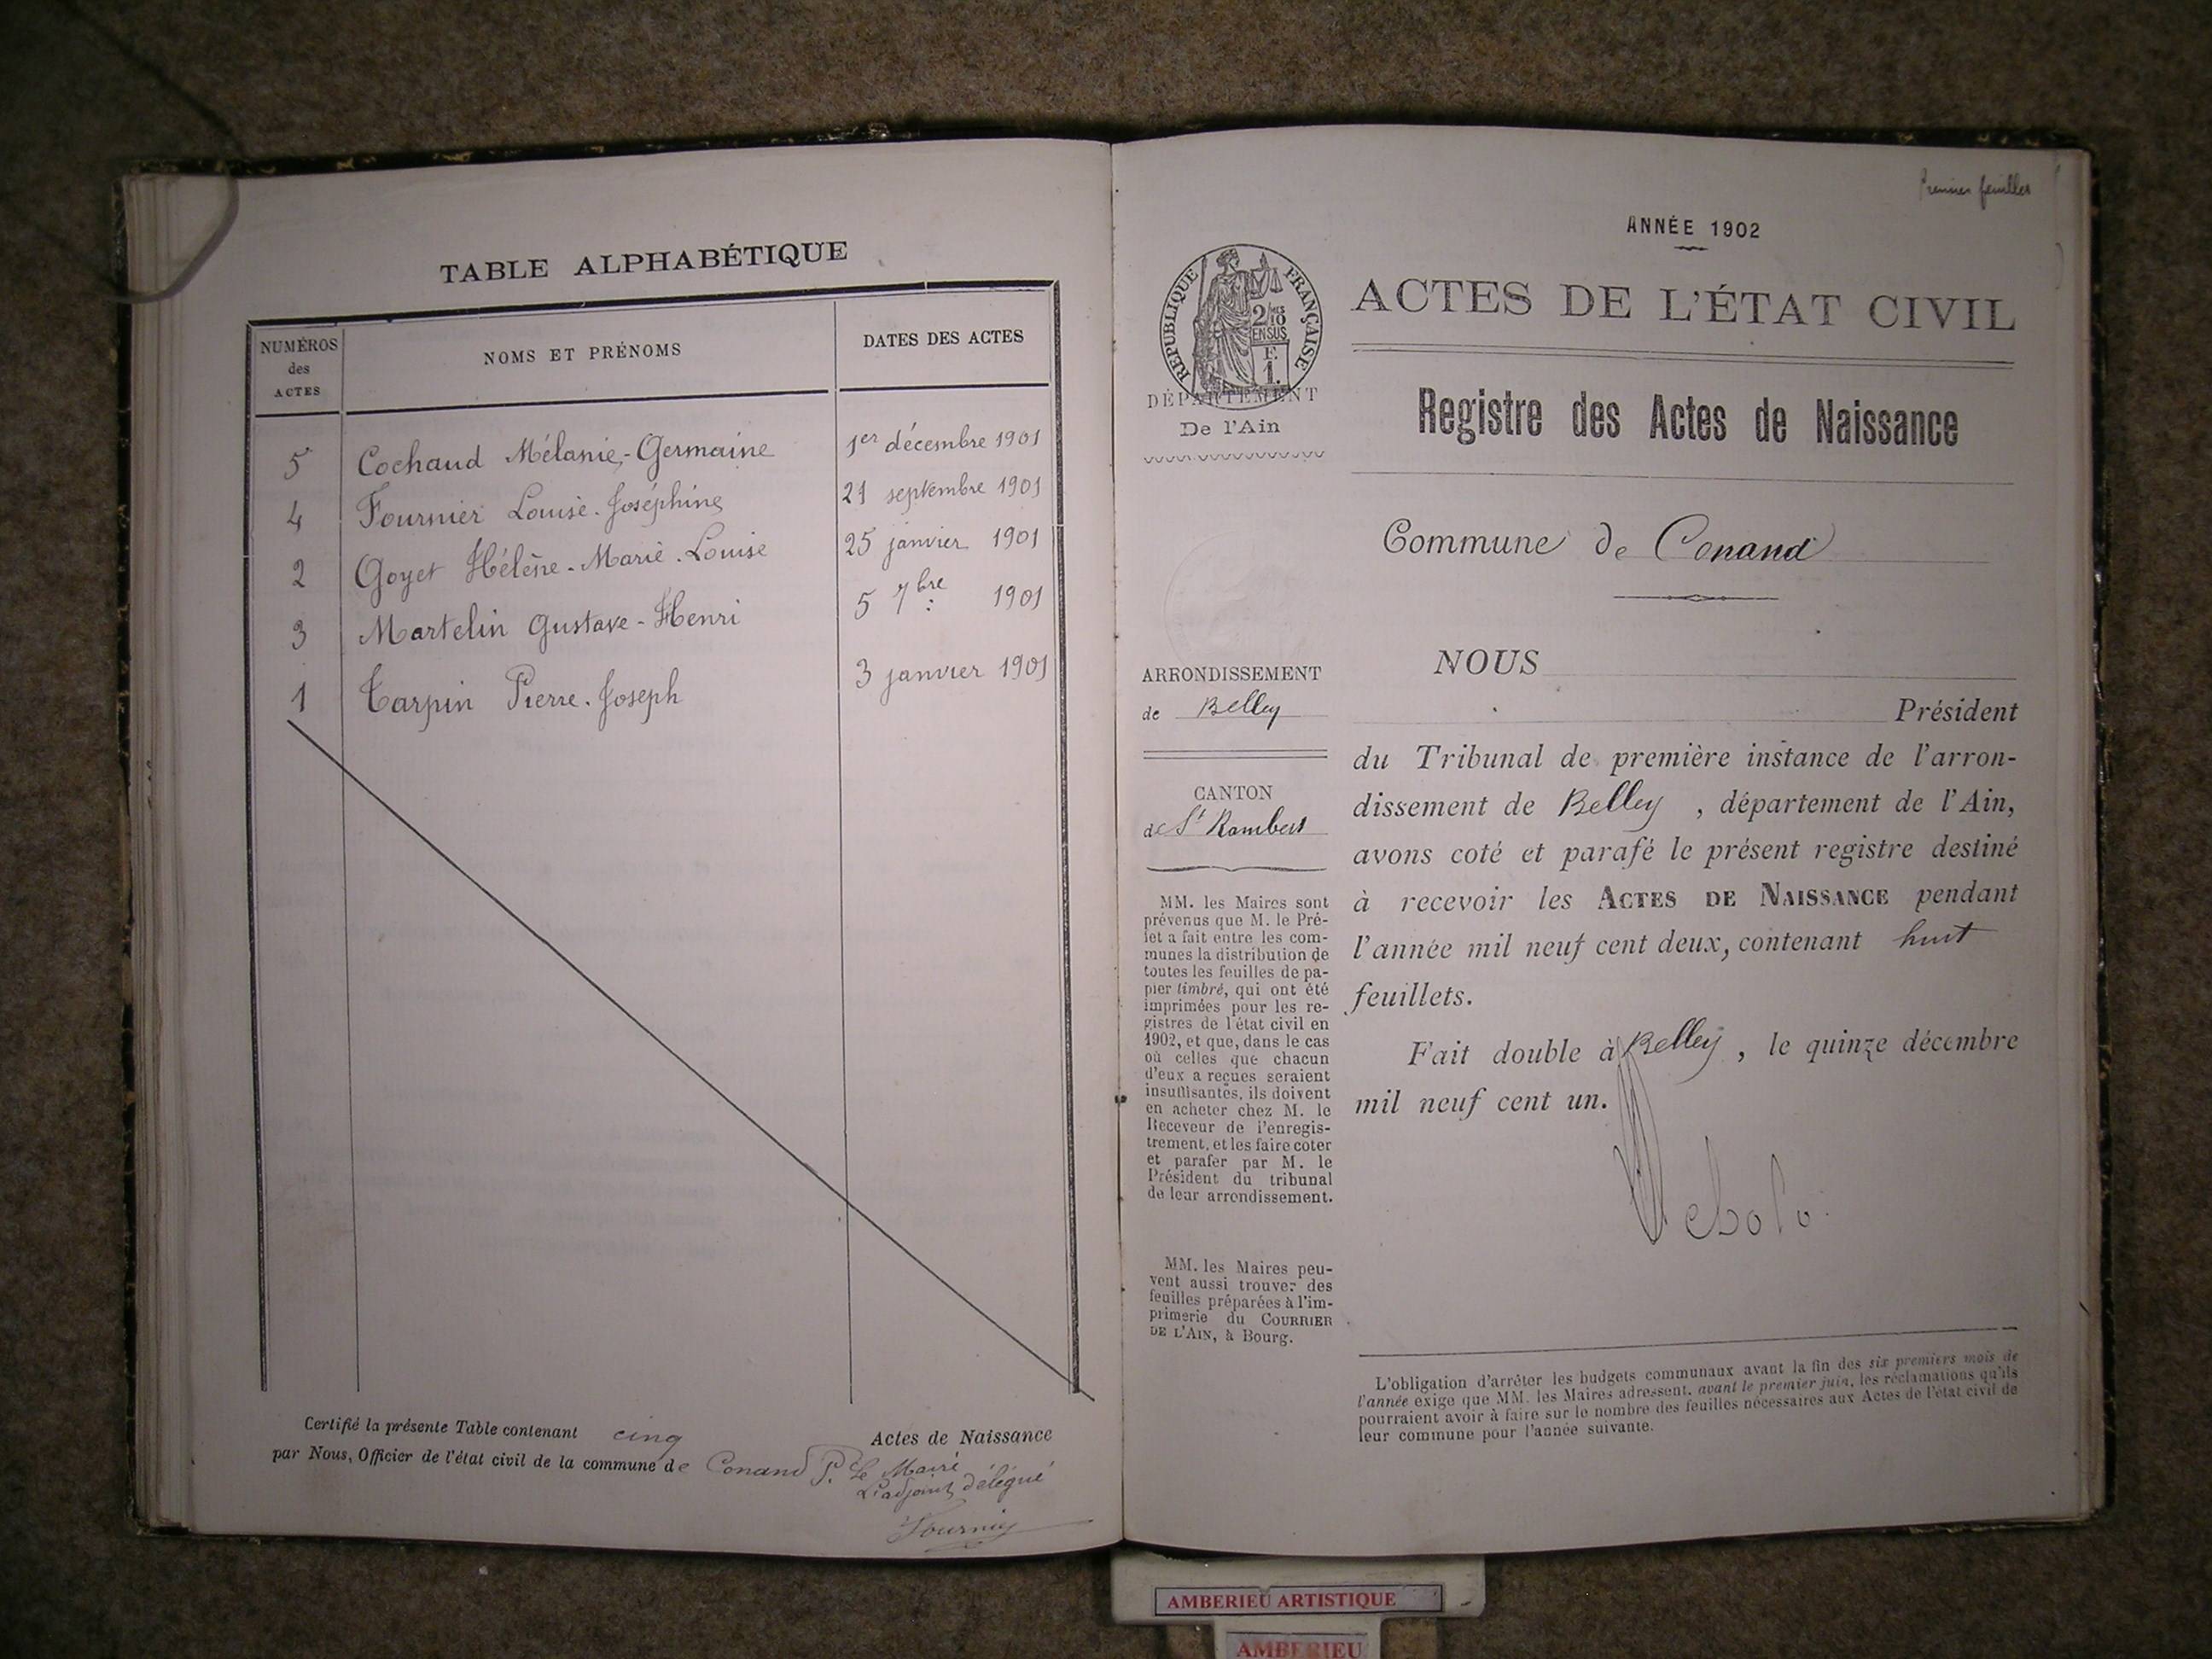 TABLE ALPHABÉTIQUE
NUMÉROS des ACTES
NOMS ET PRÉNOMS
DATES DES ACTES
5 Cochaud Mélanie-Germaine 1er décembre 1901
4 Fournier Louise-Joséphine 21 septembre 1901
2 Goyet Hélène-Marie-Louise 25 janvier 1901
3 Martelin Gustave-Henri 5 7bre 1901
1 Tarpin Pierre-Joseph 3 janvier 1901
Certifié la présente Table contenant cinq Actes de Naissance
par Nous, Officier de l'état civil de la commune de Conand P. Le Maire
L'adjoint délégué
Fournier
Premier feuillet
ANNÉE 1902
RÉPUBLIQUE FRANÇAISE
2/10
EN SUS
F.
1.
ACTES DE L'ÉTAT CIVIL
DÉPARTEMENT
De l'Ain
Registre des Actes de Naissance
Commune de Conand
ARRONDISSEMENT
de Belley
CANTON
de St Rambert
MM. les Maires sont
prévenus que M. le Pré-
fet a fait entre les com-
munes la distribution de
toutes les feuilles de pa-
pier timbré, qui ont été
imprimées pour les re-
gistres de l'état civil en
1902, et que, dans le cas
où celles que chacun
d'eux a reçues seraient
insuffisantes, ils doivent
en acheter chez M. le
Receveur de l'enregis-
trement, et les faire coter
et parafer par M. le
Président du tribunal
de leur arrondissement.
MM. les Maires peu-
vent aussi trouver des
feuilles préparées à l'im-
primerie du COURRIER
DE L'AIN, à Bourg.
NOUS
Président
du Tribunal de première instance de l'arron-
dissement de Belley, département de l'Ain,
avons coté et parafé le présent registre destiné
à recevoir les ACTES DE NAISSANCE pendant
l'année mil neuf cent deux, contenant huit
feuillets.
Fait double à Belley, le quinze décembre
mil neuf cent un.
L'obligation d'arrêter les budgets communaux avant la fin des six premiers mois de
l'année exige que MM. les Maires adressent, avant le premier juin, les réclamations qu'ils
pourraient avoir à faire sur le nombre des feuilles nécessaires aux Actes de l'état civil de
leur commune pour l'année suivante.
AMBERIEU ARTISTIQUE
AMBERIEU